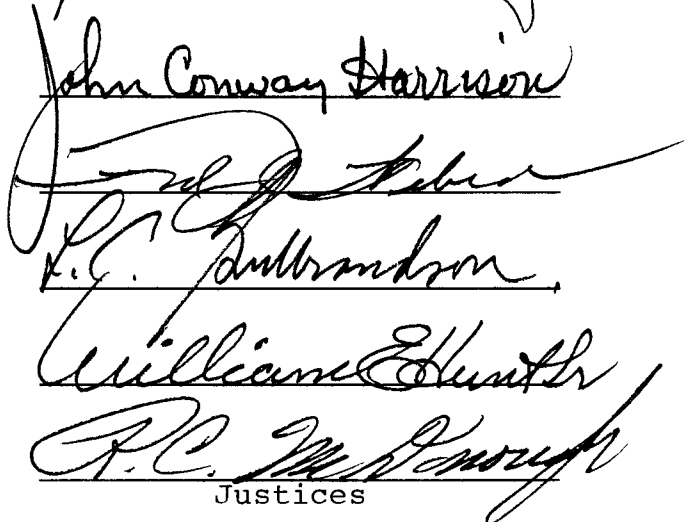 John Conway Harrison
Fred J. Weber
L.C. Gulbrandson
William E Hunt Sr
R.C. McDonough
Justices